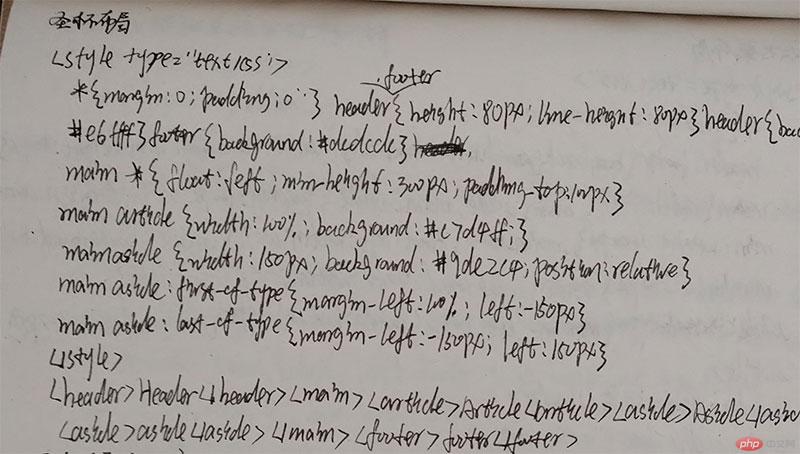 圣杯布局
<style type="text/css">
, footer
*{margin:0; padding:0;} header{height:80px; line-height:80px}header{bac
#e6ffff}footer{background:#dcdcdc}
main *{float:left; min-height:300px; padding-top:100px}
main article {width:100%; background:#c7d4ff;}
main aside {width:150px; background:#9de2c4; position:relative}
main aside:first-of-type{margin-left:100%; left:-150px}
main aside:last-of-type{margin-left:-150px; left:150px}
</style>
<header>Header</header><main><article>Article</article><aside>Aside</aside
<aside>aside</aside></main><footer>footer</footer>
php 中文网